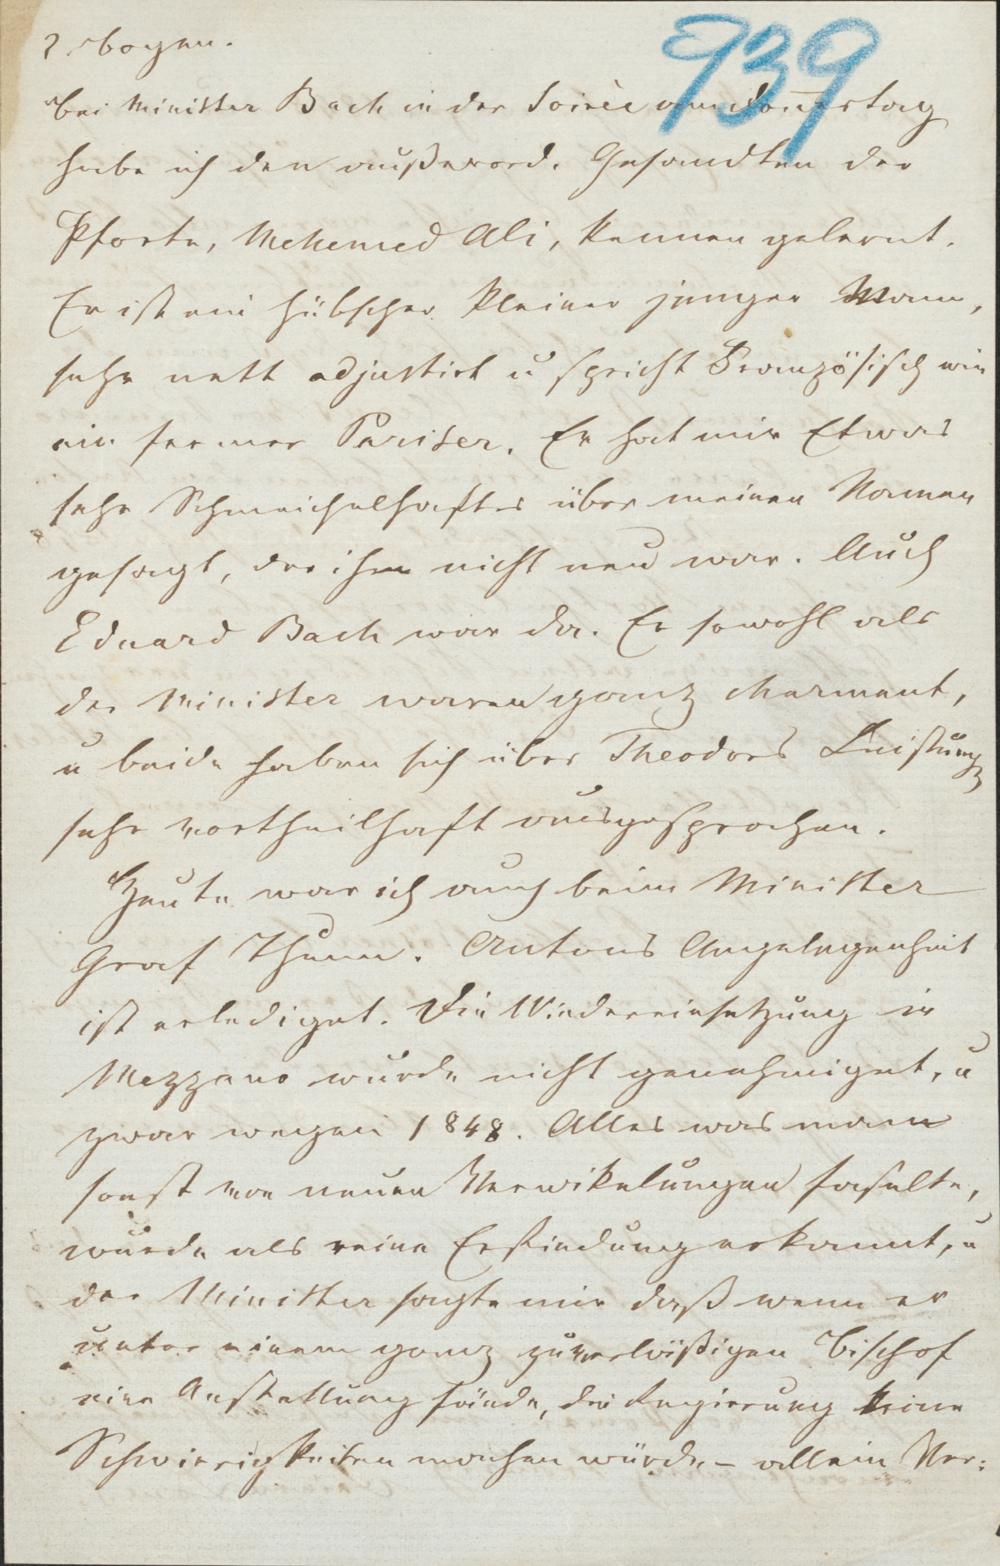 2 Bogen.
939
Bei Minister Bach in der Soirée am Donnerstag
habe ich den außerord. Gesandten der
Pforte, Mehemed Ali, kennen gelernt.
Er ist ein hübscher kleiner junger Mann,
sehr nett adjustirt u spricht Französisch wie
ein fermer Pariser. Er hat mir Etwas
sehr Schmeichelhaftes über meinen Namen
gesagt, der ihm nicht neu war. Auch
Eduard Bach war da. Er sowohl als
der Minister waren ganz charmant,
u beide haben sich über Theodors Leistung
sehr vortheilhaft ausgesprochen.
Heute war ich auch beim Minister
Graf Thunn. Antons Angelegenheit
ist erlediget. Die Wiedereinsetzung in
Mezzano wurde nicht genehmiget, u
zwar wegen 1848. Alles was man
sonst von neuen Verwikelungen faselte,
wurde als reine Erfindung erkannt, u
der Minister sagte mir daß wenn er
unter einem ganz zuverläßigen Bischof
eine Anstellung fände, die Regierung keine
Schwierigkeiten machen würde – allein Ver: